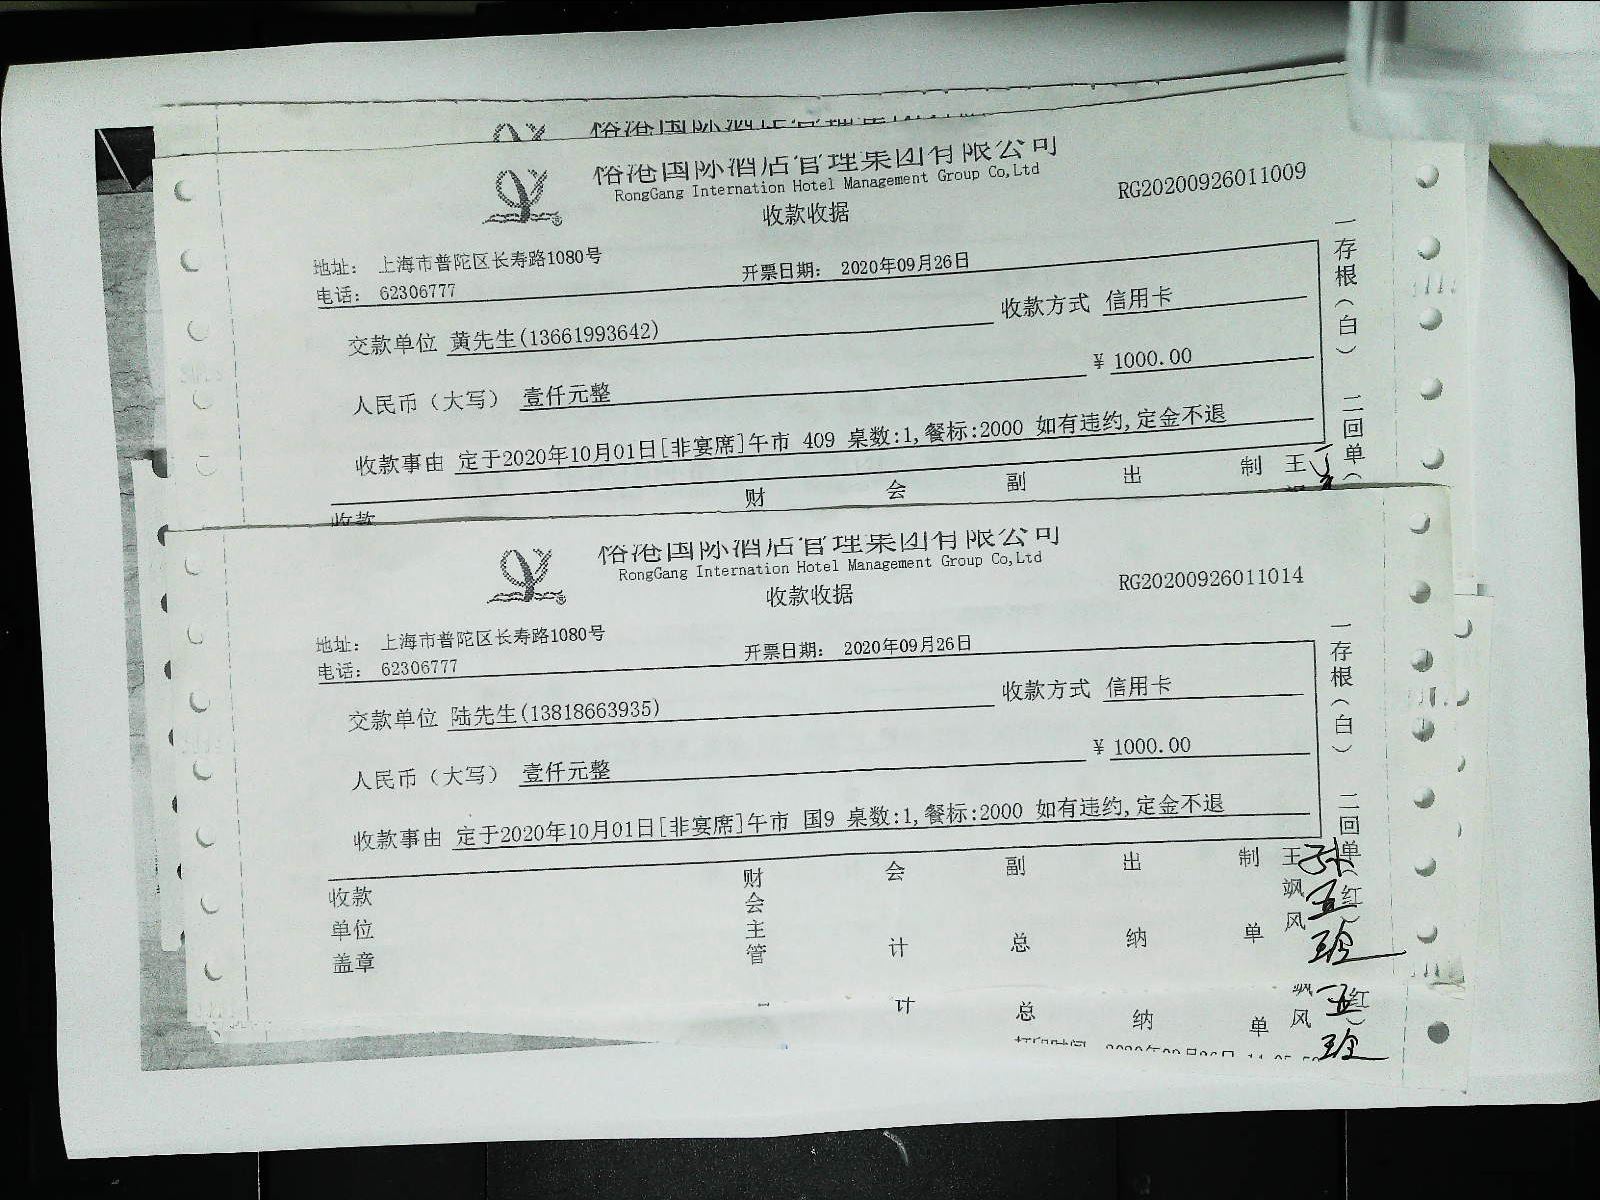 俗港国际酒店管理集团有限公司
RongGang Internation Hotel Management Group Co,Ltd
收款收据
RG20200926011009
地址： 上海市普陀区长寿路1080号
电话： 62306777
开票日期： 2020年09月26日
交款单位 黄先生(13661993642)
收款方式 信用卡
人民币（大写） 壹仟元整
¥ 1000.00
收款事由 定于2020年10月01日[非宴席]午市 409 桌数:1,餐标:2000 如有违约,定金不退
一存根（白） 二回单（
收款 财 会 副 出 制 王
俗港国际酒店管理集团有限公司
RongGang Internation Hotel Management Group Co,Ltd
收款收据
RG20200926011014
地址： 上海市普陀区长寿路1080号
电话： 62306777
开票日期： 2020年09月26日
交款单位 陆先生(13818663935)
收款方式 信用卡
人民币（大写） 壹仟元整
¥ 1000.00
收款事由 定于2020年10月01日[非宴席]午市 国9 桌数:1,餐标:2000 如有违约,定金不退
一存根（白） 二回单（红）
收款单位盖章
财会主管
会计
副总
出纳
制单
王飒风
计 总 纳 单 飒风 红）